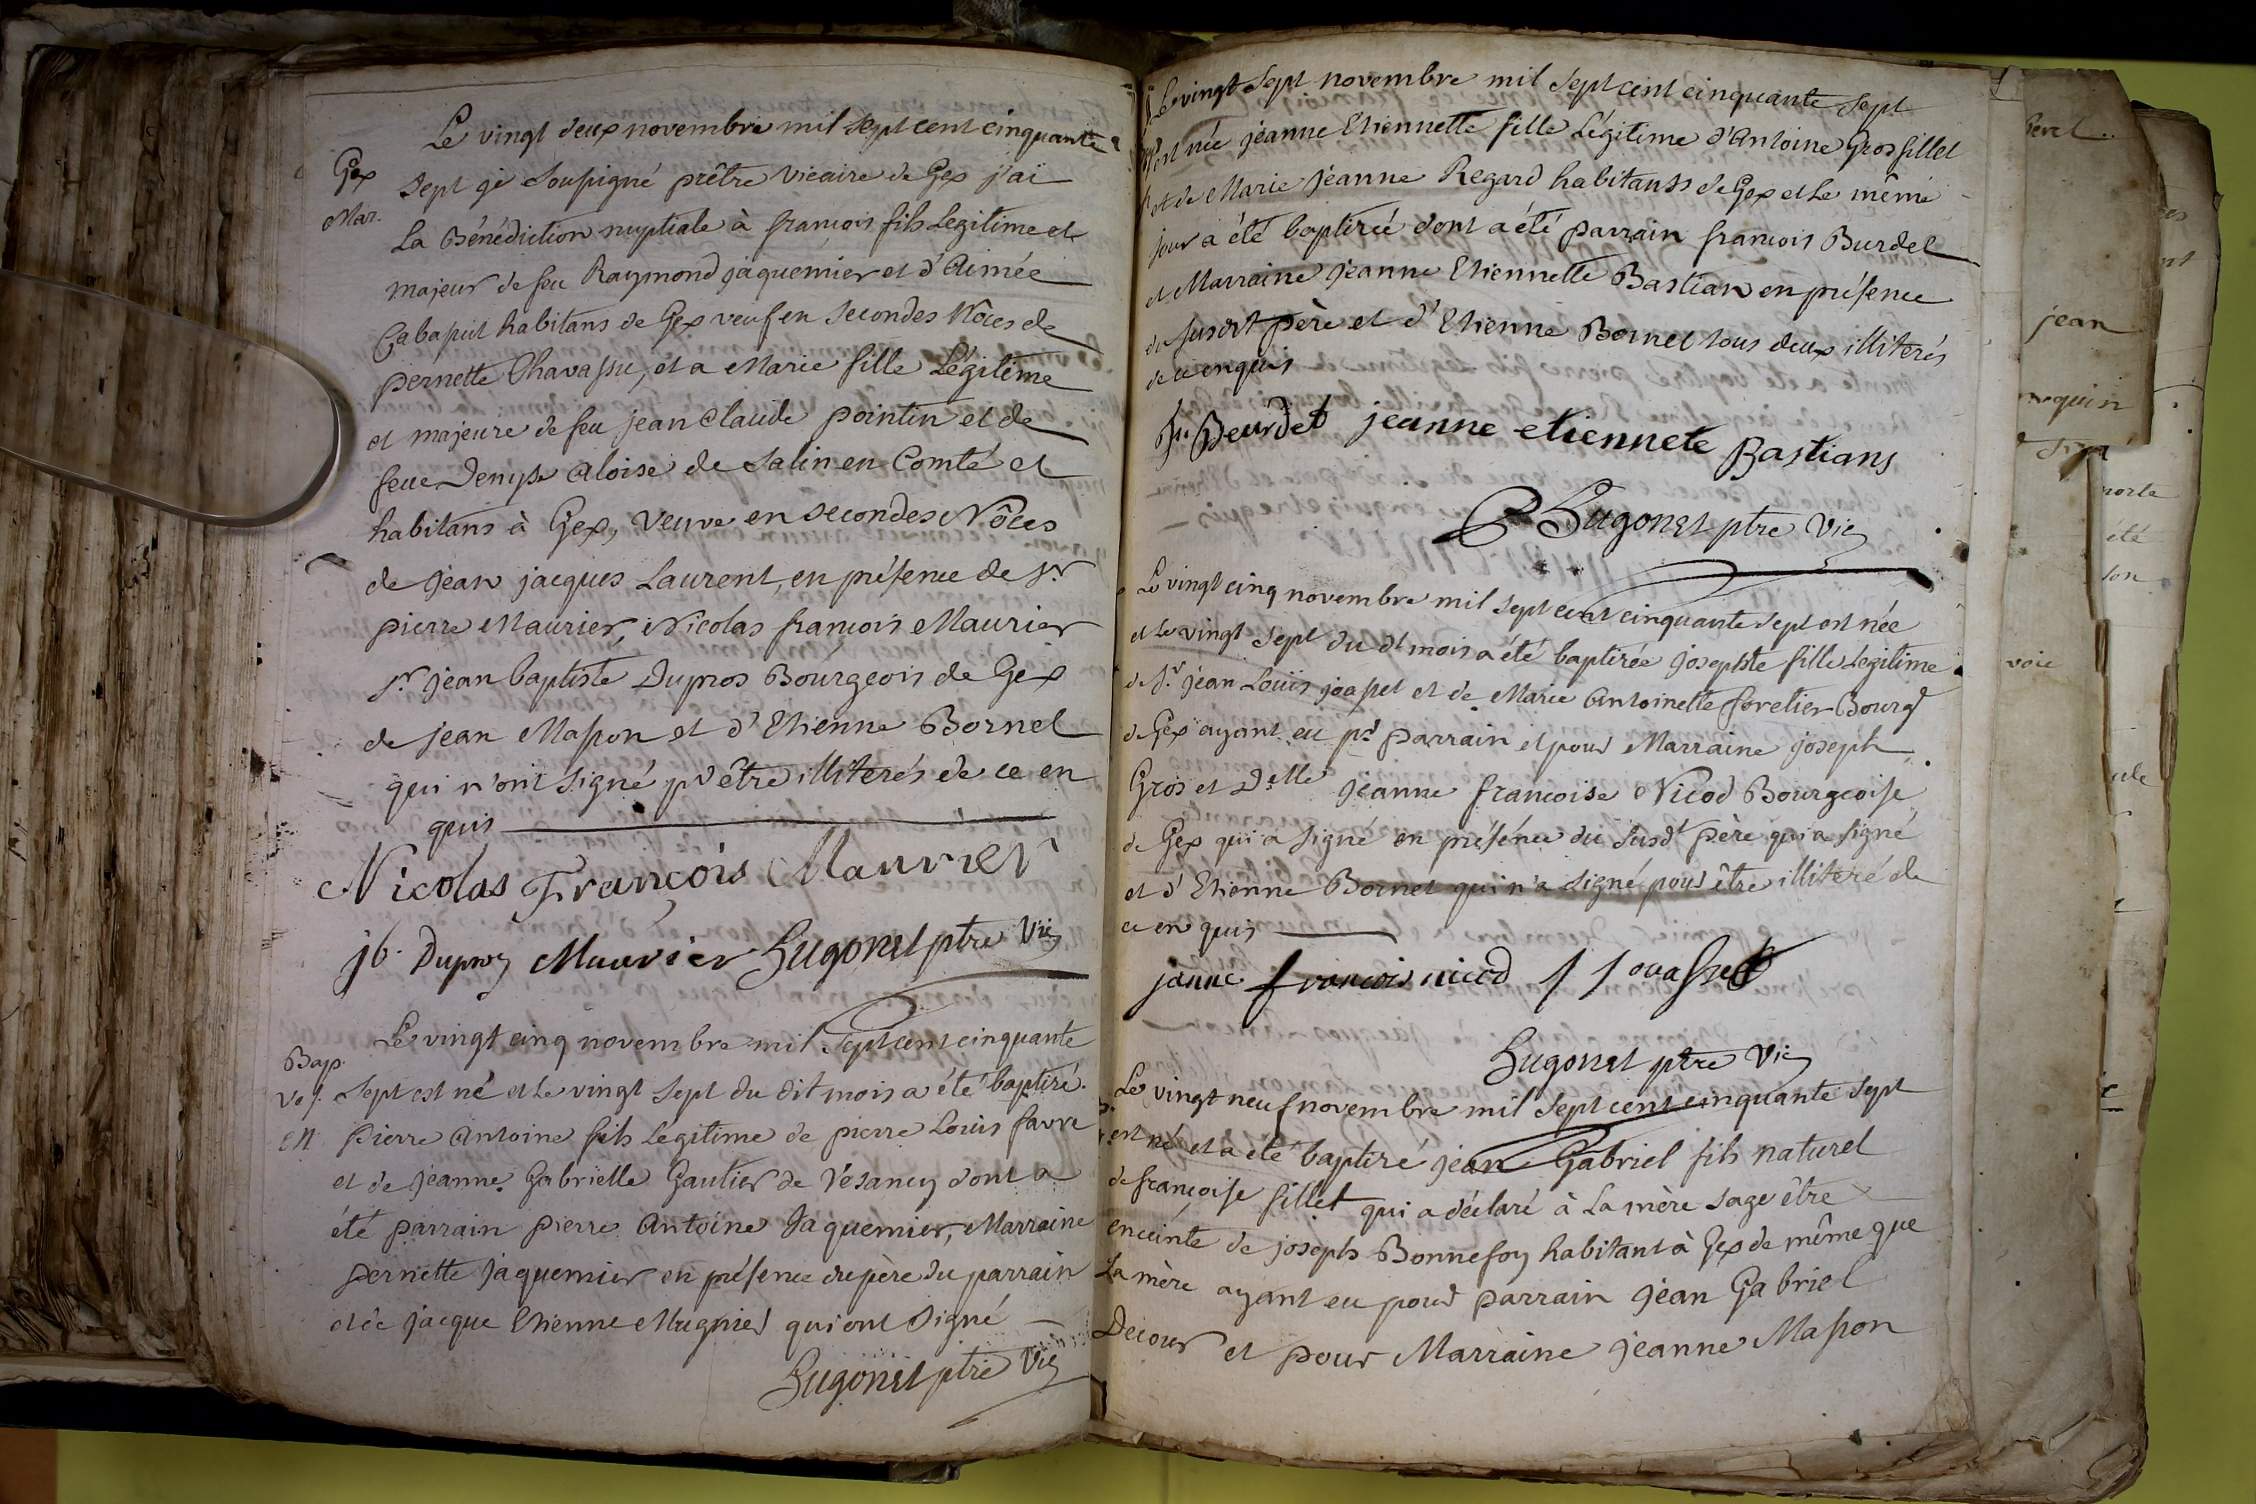 Le vingt deux novembre mil sept cent cinquante
Gex
sept je soussigné prêtre vicaire de Gex j'ai
Mar.
la Bénédiction nuptiale à francois fils Legitime et
majeur de feu Raymond jaquemier et d'Aimée
habitans de Gex veuf en secondes Nôces de
pernette Chavassu, et a Marie fille Légitime
et majeure de feu jean claude pointin et de
feue Denyse aloise de Salin en Comté et
habitans à Gex, veuve en secondes Nôces
de jean jacques Laurent, en présence de Sr
pierre Maurier, Nicolas francois Maurier
Sr jean baptiste Dupros Bourgeois de Gex
de jean Masson et d'Etienne Bornet
qui n'ont signé pr être illiterés de ce en
quis
Nicolas François Maurier
jb. Dupros Maurier Hugonet ptre Vic
Le vingt cinq novembre mil sept cent cinquante
Bap.
Ves.
sept est né et le vingt sept du dit mois a été baptisé
pierre antoine fils legitime de pierre Louis favre
et de jeanne Gabrielle Gautier de Vésancy dont a
été parrain pierre antoine jaquemier, Marraine
pernette jaquemier en présence du père du parrain
et de jacque Etienne Mugnier qui ont signé
Hugonet ptre Vic
Le vingt sept novembre mil sept cent cinquante sept
est née jeanne Etiennette fille Légitime d'Antoine Grosfillet
et de Marie jeanne Regard habitans de Gex et Le même
jour a été baptisée dont a été parrain francois Burdet
et Marraine jeanne Etiennette Bastian en présence
du susdt père et d'Etienne Bornet tous deux illiterés
de ce enquis
fr. Beurdet jeanne etiennete Bastians
Hugonet ptre Vic
Le vingt cinq novembre mil sept cent cinquante sept est née
et Le vingt sept du dt mois a été baptisée josephte fille Legitime
de Sr jean Louis joasset et de Marie Antoinette fevetier Bourg
de Gex ayant eu pr parrain et pour Marraine joseph
Gros et Delle jeanne francoise Nicod Bourgeoise
de Gex qui a signé en présénce du susdt père qui a signé
et d'Etienne Bornet qui n'a signé pour être illiteré de
ce en quis
janne francois nicod j l ouasset
Hugonet ptre Vic
Le vingt neuf novembre mil sept cent cinquante sept
est né et a été baptisé jean Gabriel fils naturel
de françoise fillet qui a déclaré à La mère sage être
enceinte de joseph Bonnefoy habitant à Gex de même que
La mère ayant eu pour parrain jean Gabriel
Decour et pour Marraine jeanne Masson
jean
voie
porte
été
son